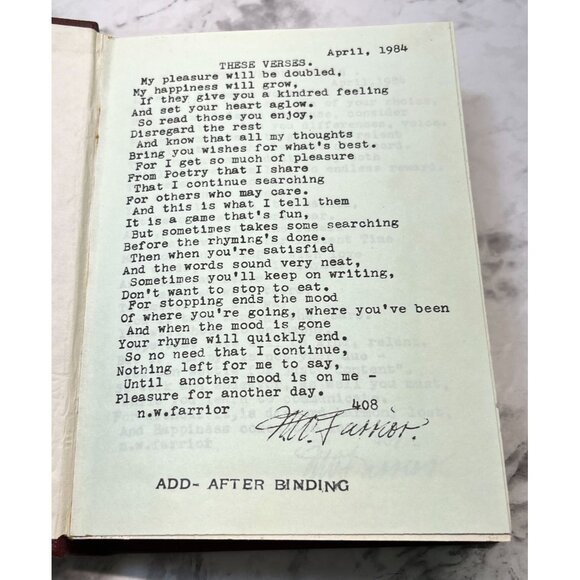 April, 1984
THESE VERSES.
My pleasure will be doubled,
My happiness will grow,
If they give you a kindred feeling
And set your heart aglow.
So read those you enjoy,
Disregard the rest
And know that all my thoughts
Bring you wishes for what's best.
For I get so much of pleasure
From Poetry that I share
That I continue searching
For others who may care.
And this is what I tell them
It is a game that's fun,
But sometimes takes some searching
Before the rhyming's done.
Then when you're satisfied
And the words sound very neat,
Sometimes you'll keep on writing,
Don't want to stop to eat.
For stopping ends the mood
Of where you're going, where you've been
And when the mood is gone
Your rhyme will quickly end.
So no need that I continue,
Nothing left for me to say,
Until another mood is on me -
Pleasure for another day.
n.w.farrior
408
N.W. Farrior.
ADD- AFTER BINDING